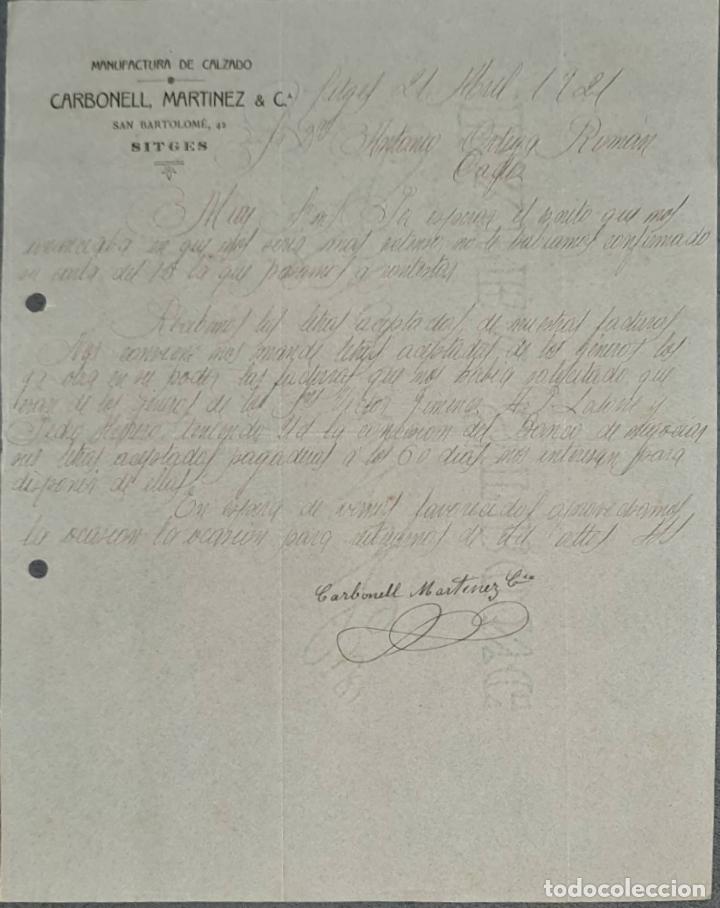 MANUFACTURA DE CALZADO
CARBONELL, MARTINEZ & C.ª
SAN BARTOLOMÉ, 42
SITGES
Sitges 21 Abril 1921
Sr Dn Antonio Ortega Román
Cadiz
Muy Sr. Por esperar el escrito que nos
anunciaba en que nos seria mas extenso no le habiamos confirmado
su carta del 18 la que pasamos a contestar
Recibimos las letras aceptadas, de nuestras facturas
Nos conviene nos mande letras aceptadas, de los géneros los
obra en su poder las facturas que nos habia solicitado que
eran de los géneros de los Sres Victor Jimenez, y
Pedro teniendo Vd la del Banco de
sus letras aceptadas pagaderas a los 60 dias nos interesan para
disponer de ellas
En espera de vernos favorecidos aprovechamos
la ocasion la ocasion para de Vd attos SS
Carbonell Martinez Cia
todocoleccion
todocoleccion